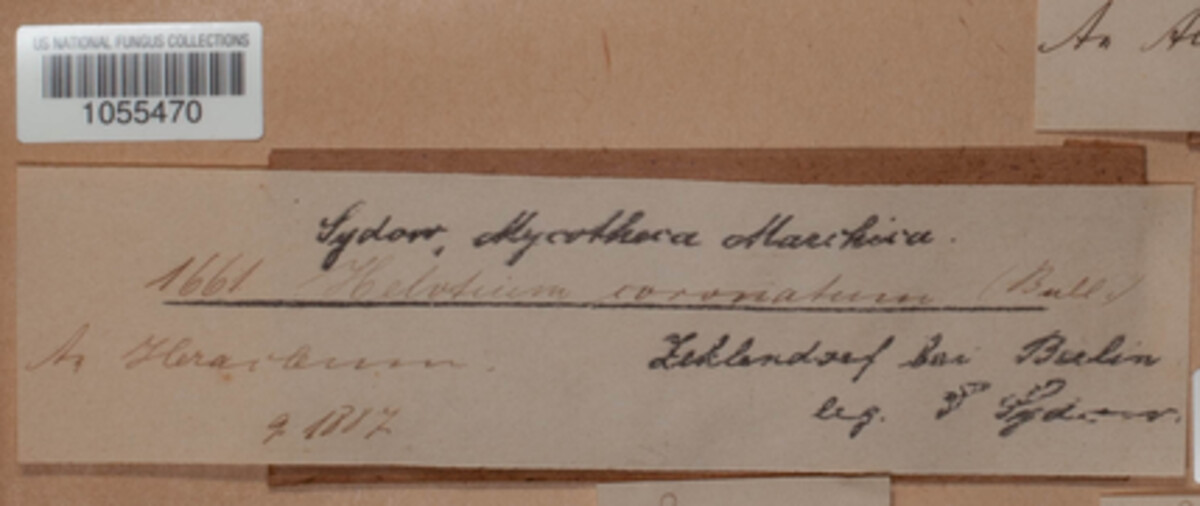 US NATIONAL FUNGUS COLLECTIONS
1055470
An
Sydow, Mycotheca Marchica.
1661 Helotium coronatum (Bull.)
An Heracleum.
Zehlendorf bei Berlin
9 1887
leg. P Sydow.